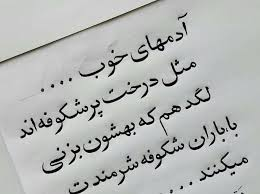 آدمهای خوب ....
مثل درخت پرشکوفه اند
لگد هم که بهشون بزنی
با باران شکوفه شرمندت
میکنند ....